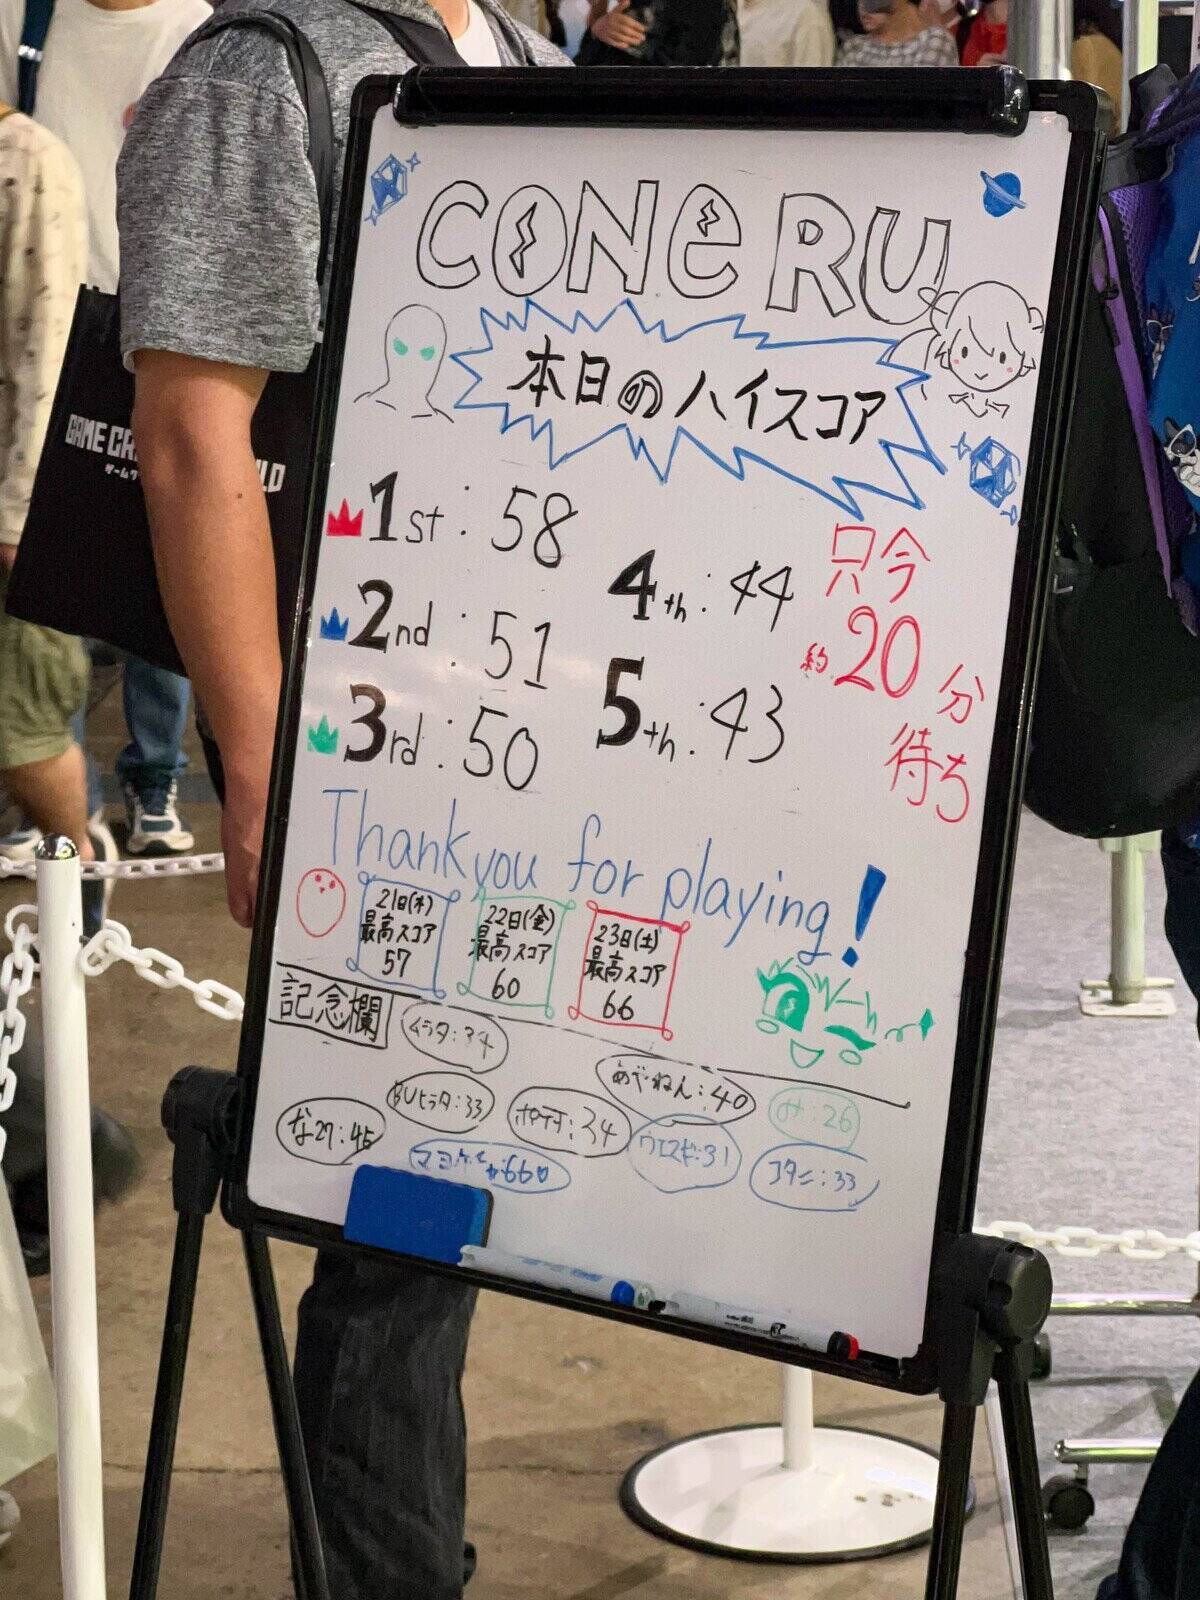 CONERU
本日のハイスコア
1st: 58
2nd: 51
3rd: 50
4th: 44
5th: 43
只今
約20分
待ち
Thank you for playing!
21日(木)
最高スコア
57
22日(金)
最高スコア
60
23日(土)
最高スコア
66
記念欄
ムラタ:34
BUヒラタ:33
:34
:40
み:26
な27:45
ウエスギ:31
:33
GAME